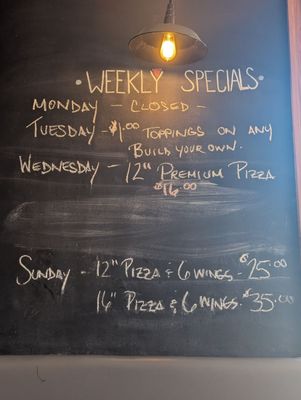 • WEEKLY SPECIALS •
MONDAY - CLOSED -
TUESDAY - $1.00 TOPPINGS ON ANY
BUILD YOUR OWN.
WEDNESDAY - 12" PREMIUM PIZZA
$16.00
SUNDAY - 12" PIZZA & 6 WINGS - $25.00
16" PIZZA & 6 WINGS - $35.00